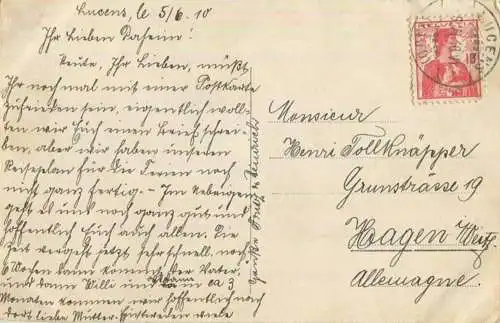 Lucens, le 5/6.10
Ihr Lieben Daheim!
Heute, Ihr Lieben, müßt
Ihr noch mal mit einer Postkarte
zufrieden sein, eigentlich woll-
ten wir Euch einen Brief schrei-
ben, aber wir haben unseren
Reiseplan für die Ferien noch
nicht ganz fertig. - Im Uebrigen
geht es uns noch ganz gut und
hoffentlich Euch auch allen. Die
Zeit vergeht jetzt sehr schnell, noch
6 Wochen dann kommt der Vater,
und dann Willi und dann ca 3
Monaten kommen wir hoffentlich nach
dort liebe Mutter. viele
Grüße Fritz & Heinrich
Monsieur
Henri Tollknäpper
Grunstrasse 19
Hagen i/Westf.
Allemagne.